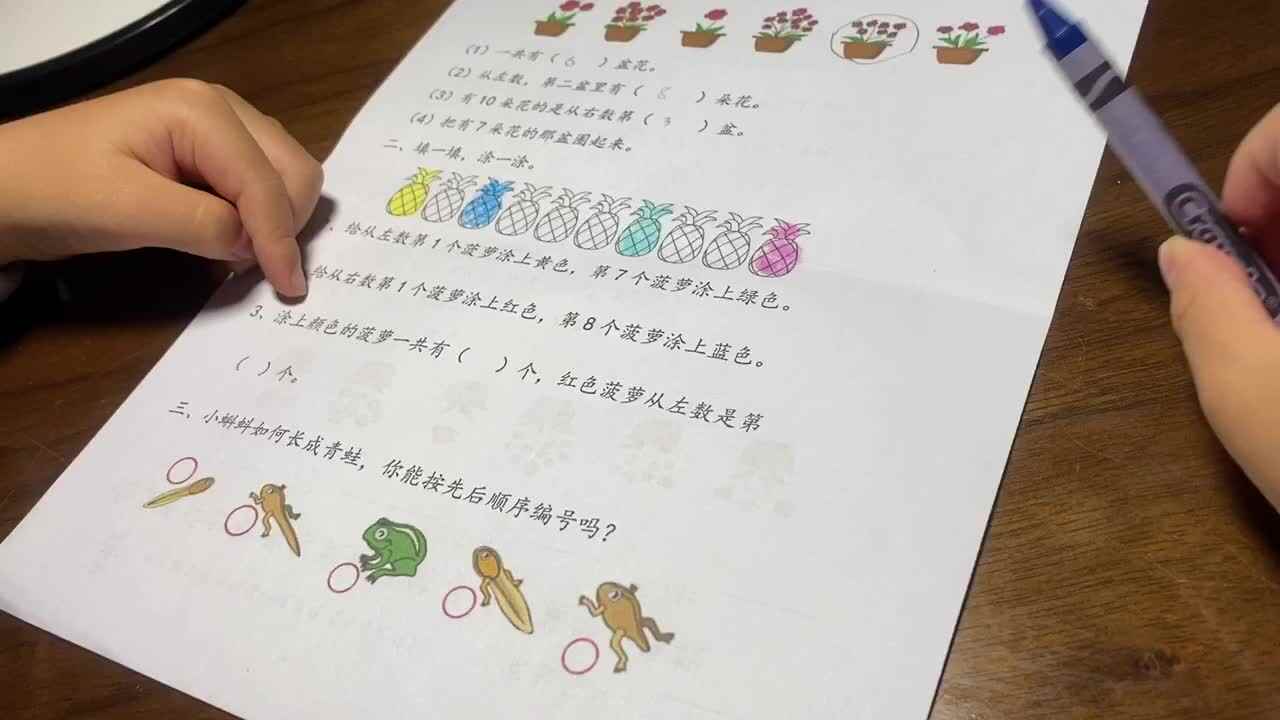 (1) 一共有( 6 )盆花。
(2) 从左数，第二盆里有( 8 )朵花。
(3) 有10朵花的是从右数第( 3 )盆。
(4) 把有7朵花的那盆圈起来。
二、填一填，涂一涂。
、给从左数第1个菠萝涂上黄色，第7个菠萝涂上绿色。
给从右数第1个菠萝涂上红色，第8个菠萝涂上蓝色。
3、涂上颜色的菠萝一共有( )个，红色菠萝从左数是第
( )个。
三、小蝌蚪如何长成青蛙，你能按先后顺序编号吗？